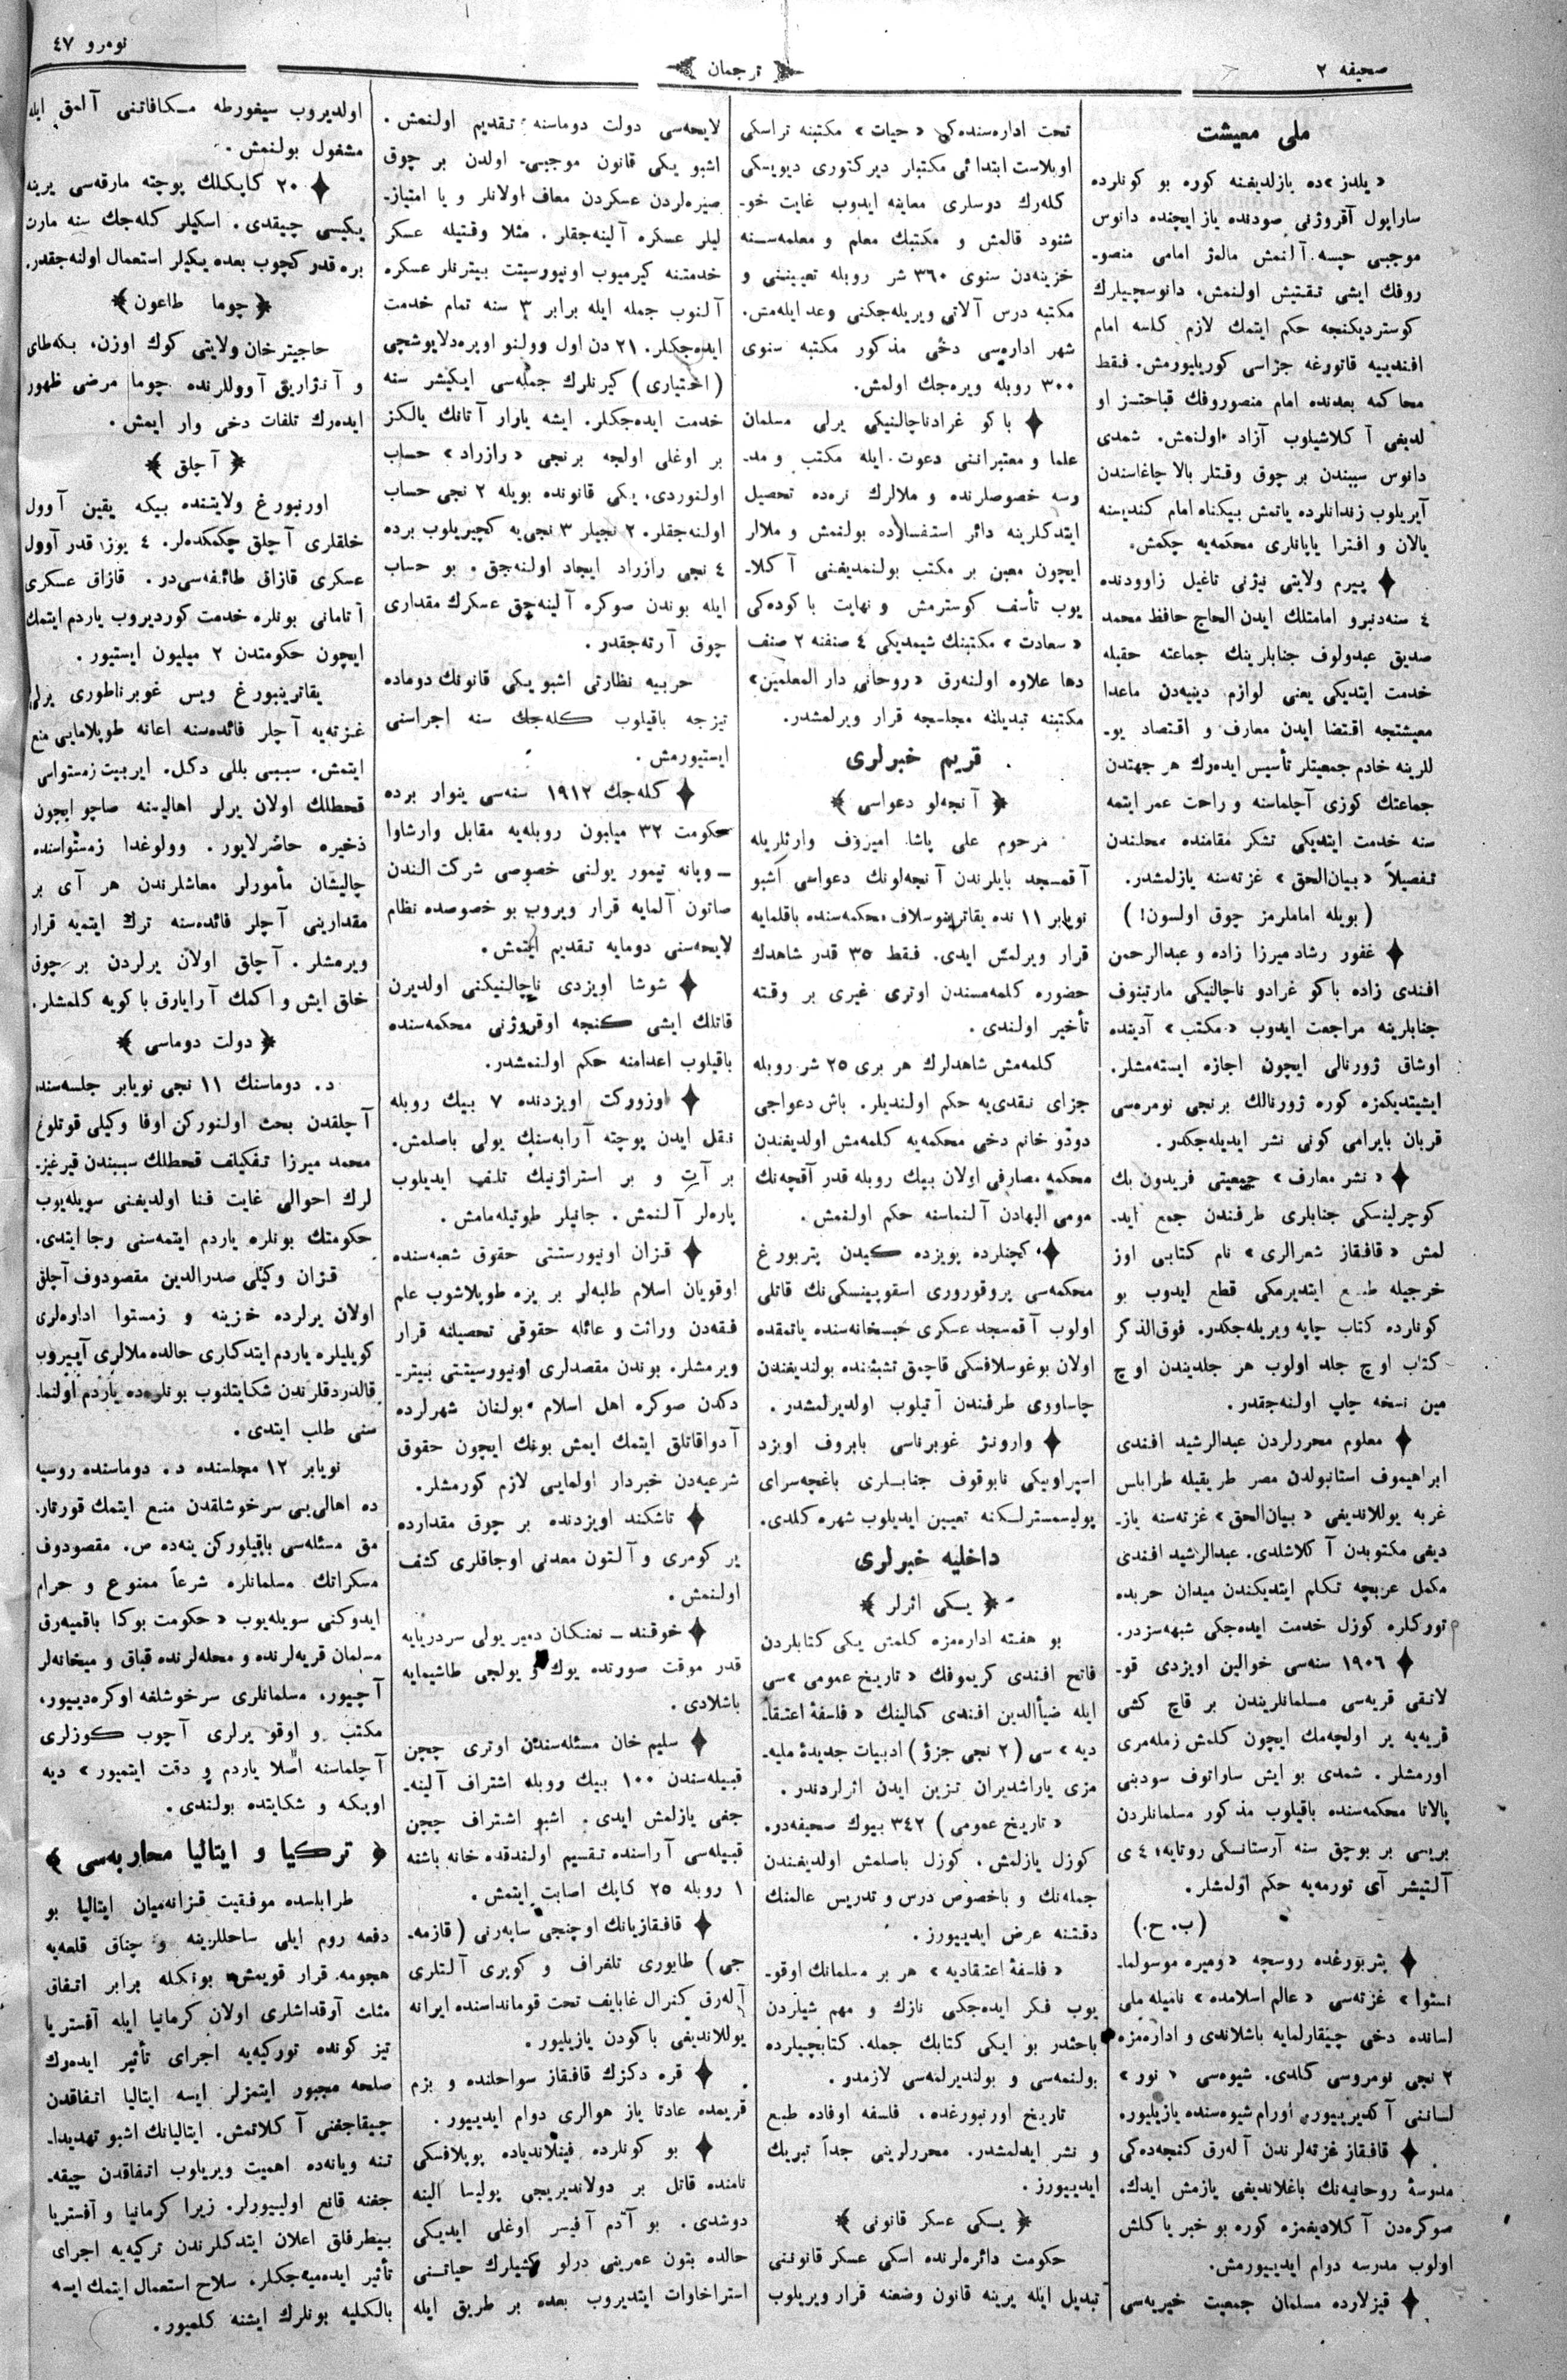 صحيفه ٢
ترجمان
نومرو ٤٧
ملى معيشت
« يلدز »ده يازلديغنه كوره بو كونلرده
ساراپول آقروژنى صودنده ياز ايچنده دانوس
موجبى حپسه آلنمش مالمژ امامى منصو-
روفك ايشى تفتيش اولنمش، دانوسچيلرك
كوسترديكنجه حكم ايتمك لازم كلسه امام
افندييه قاتورغه جزاسى كوريليورمش. فقط
محاكمه بعدنده امام منصوروفك قباحتسز او
لديغى آكلاشيلوب آزاد اولنمش. شمدى
دانوس سببندن بر چوق وقتلر بالا چاغاسندن
آيريلوب زندانلرده ياتمش بيكناه امام كنديسنه
يالان و افترا ياپانلرى محكمه‌يه چكمش.
پيرم ولايتى نيژنى تاغيل زاوودنده
٤ سنه‌دنبرو امامتلك ايدن الحاج حافظ محمد
صديق عبدولوف جنابلرينك جماعته حقيله
خدمت ايتديكى يعنى لوازم دينيه‌دن ماعدا
معيشتجه اقتضا ايدن معارف و اقتصاد يو-
للرينه خادم جمعيتلر تأسيس ايده‌رك هر جهتدن
جماعتك كوزى آچلماسنه و راحت عمر ايتمه
سنه خدمت ايتديكى تشكر مقامنده محلندن
تفصيلاً « بيان‌الحق » غزته‌سنه يازلمشدر.
( بويله اماملرمز چوق اولسون! )
غفور رشاد ميرزا زاده و عبدالرحمن
افندى زاده باكو غرادو ناچالنيكى مارتينوف
جنابلرينه مراجعت ايدوب « مكتب » آدينده
اوشاق ژورنالى ايچون اجازه ايسته‌مشلر.
ايشيتديكمزه كوره ژورنالك برنجى نومره‌سى
قربان بايرامى كونى نشر ايديله‌جكدر.
« نشر معارف » جمعيتى فريدون بك
كوچرلينسكى جنابلرى طرفندن جمع ايد-
لمش « قافقاز شعرالرى » نام كتابى اوز
خرجيله طبع ايتديرمكى قطع ايدوب بو
كونلرده كتاب چاپه ويريله‌جكدر. فوق‌الذكر
كتاب اوچ جلد اولوب هر جلديندن اوچ
مين نسخه چاپ اولنه‌جقدر.
معلوم محررلردن عبدالرشيد افندى
ابراهيموف استانبولدن مصر طريقيله طرابلس
غربه يوللانديغى « بيان‌الحق » غزته‌سنه ياز-
ديغى مكتوبدن آكلاشلدى. عبدالرشيد افندى
مكمل عربچه تكلم ايتديكندن ميدان حربده
توركلره كوزل خدمت ايده‌جكى شبهه‌سزدر.
١٩٠٦ سنه‌سى خوالين اويزدى قو-
لاتقى قريه‌سى مسلمانلريندن بر قاچ كشى
قريه‌يه ير اولچه‌مك ايچون كلمش زمله‌مرى
اورمشلر. شمدى بو ايش ساراتوف سودبنى
پالاتا محكمه‌سنده باقيلوب مذكور مسلمانلردن
بريسى بر بوچق سنه آرستانسكى روتايه، ٤ ى
آلتيشر آى تورمه‌يه حكم اولمشلر.
( ب. ح. )
پتربورغده روسچه « وميره موسولما-
نستوا » غزته‌سى « عالم اسلامده » ناميله ملى
لسانده دخى چيقارلمايه باشلاندى و اداره‌مزه
٢ نجى نومروسى كلدى. شيوه‌سى « نور »
لسانى آكديريپيور، اورام شيوه‌سنده يازيليور.
قافقاز غزته‌لرندن آله‌رق كنجه‌ده‌كى
مدرسهٔ روحانيه‌نك باغلانديغى يازمش ايدك.
صوكره‌دن آكلاديغمزه كوره بو خبر ياكلش
اولوب مدرسه دوام ايديپيورمش.
قيزلارده مسلمان جمعيت خيريه‌سى
تحت اداره‌سنده‌كى « حيات » مكتبنه تراسكى
اوبلاست ابتدائى مكتبلر ديركتورى ديويسكى
كله‌رك دوسلرى معاينه ايدوب غايت خو-
شنود قالمش و مكتبك معلم و معلمه‌سنه
خزينه‌دن سنوى ٣٦٠ شر روبله تعيينى و
مكتبه درس آلاتى ويريله‌جكنى وعد ايله‌مش.
شهر اداره‌سى دخى مذكور مكتبه سنوى
٣٠٠ روبله ويره‌جك اولمش.
باكو غرادناچالنيكى يرلى مسلمان
علما و معتبراننى دعوت ايله مكتب و مد-
رسه خصوصلرنده و ملالرك نره‌ده تحصيل
ايتدكلرينه دائر استفسارده بولنمش و ملالر
ايچون معين بر مكتب بولنمديغنى آكلا-
يوب تأسف كوسترمش و نهايت باكوده‌كى
« سعادت » مكتبنك شيمديكى ٤ صنفنه ٢ صنف
دها علاوه اولنه‌رق « روحانى دار المعلمين »
مكتبنه تبديلنه مجلسجه قرار ويرلمشدر.
قريم خبرلرى
﴿ آنجه‌لو دعواسى ﴾
مرحوم على پاشا اميروف وارثلريله
آقمسجد بايلرندن آنجه‌لونك دعواسى اشبو
نويابر ١١ نده يقاترينوسلاف محكمه‌سنده باقلمايه
قرار ويرلمش ايدى. فقط ٣٥ قدر شاهدك
حضوره كلمه‌مسندن اوترى غيرى بر وقته
تأخير اولندى.
كلمه‌مش شاهدلرك هر برى ٢٥ شر روبله
جزاى نقدى‌يه حكم اولنديلر. باش دعواجى
دودو خانم دخى محكمه‌يه كلمه‌مش اولديغندن
محكمه مصارفى اولان بيك روبله قدر آقچه‌نك
مومى اليهادن آلنماسنه حكم اولنمش.
كچنلرده يويزده كيدن پتربورغ
محكمه‌سى پروقورورى اسقوپينسكى‌نك قاتلى
اولوب آقمسجد عسكرى حبسخانه‌سنده ياتمقده
اولان بوغوسلافسكى قاچمق تشبثنده بولنديغندن
چاساووى طرفندن آتيلوب اولديرلمشدر.
وارونژ غوبرناسى بابروف اويزد
اسپراونيكى نابوقوف جنابلرى باغچه‌سراى
پوليسمسترلكنه تعيين ايديلوب شهره كلدى.
داخليه خبرلرى
﴿ يكى اثرلر ﴾
بو هفته اداره‌مزه كلمش يكى كتابلردن
فاتح افندى كريموفك « تاريخ عمومى »سى
ايله ضياالدين افندى كمالينك « فلسفهٔ اعتقا-
ديه » سى ( ٢ نجى جزؤ ) ادبيات جديدهٔ مليه-
مزى ياراشديران تزين ايدن اثرلردندر.
« تاريخ عمومى ) ٣٤٢ بيوك صحيفه‌در.
كوزل يازلمش، كوزل باصلمش اولديغندن
جمله‌نك و باخصوص درس و تدريس عالمنك
دقتنه عرض ايديپيورز.
« فلسفهٔ اعتقاديه » هر بر مسلمانك اوقو-
يوب فكر ايده‌جكى نازك و مهم شيلردن
باحثدر بو ايكى كتابك جمله كتابچيلرده
بولنمه‌سى و بولنديرلمه‌سى لازمدر.
تاريخ اورنبورغده، فلسفه اوفاده طبع
و نشر ايدلمشدر. محررلرينى جداً تبريك
ايديپيورز.
﴿ يكى عسكر قانونى ﴾
حكومت دائره‌لرنده اسكى عسكر قانوننى
تبديل ايله يرينه قانون وضعنه قرار ويريلوب
لايحه‌سى دولت دوماسنه تقديم اولنمش.
اشبو يكى قانون موجبى- اولدن بر چوق
صيره‌لردن عسكردن معاف اولانلر و يا امتياز-
ليلر عسكره آلينه‌جقلر. مثلا وقتيله عسكر
خدمتنه كيرميوب اونيورسيتت بيترنلر عسكره
آلنوب جمله ايله برابر ٣ سنه تمام خدمت
ايده‌جكلر. ٢١ دن اول وولنو اوپره‌دلايوشچى
( اختيارى ) كيرنلرك جمله‌سى ايكيشر سنه
خدمت ايده‌جكلر. ايشه يارار آتانك يالكز
بر اوغلى اولجه برنجى « رازراد » حساب
اولنوردى. يكى قانونده بويله ٢ نجى حساب
اولنه‌جقلر. ٢ نجيلر ٣ نجى‌يه كچيريلوب برده
٤ نجى رازراد ايجاد اولنه‌جق. بو حساب
ايله بوندن صوكره آلينه‌جق عسكرك مقدارى
چوق آرته‌جقدر.
حربيه نظارتى اشبو يكى قانونك دوماده
تيزجه باقيلوب كله‌جك سنه اجراسنى
ايستيورمش.
كله‌جك ١٩١٢ سنه‌سى ينوار برده
حكومت ٣٢ ميليون روبله‌يه مقابل وارشاوا
ـ ويانه تيمور يولنى خصوصى شركت الندن
صاتون آلمايه قرار ويروب بو خصوصده نظام
لايحه‌سنى دومايه تقديم ايتمش.
شوشا اويزدى ناچالنيكنى اولديرن
قاتلك ايشى كنجه اوقروژنى محكمه‌سنده
باقيلوب اعدامنه حكم اولنمشدر.
اوزوركت اويزدنده ٧ بيك روبله
نقل ايدن پوچته آرابه‌سنك يولى باصلمش.
بر آت و بر استراژنيك تلف ايديلوب
پاره‌لر آلنمش. جانيلر طوتيله‌مامش.
قزان اونيورستتى حقوق شعبه‌سنده
اوقويان اسلام طلبه‌لر بر يزه طوپلاشوب علم
فقه‌دن وراثت و عائله حقوقى تحصيلنه قرار
ويرمشلر. بوندن مقصدلرى اونيورسيتتى بيتر-
دكدن صوكره اهل اسلام بولنان شهرلرده
آدواقاتلق ايتمك ايمش بونك ايچون حقوق
شرعيه‌دن خبردار اولمايى لازم كورمشلر.
تاشكند اويزدنده بر چوق مقدارده
ير كومرى و آلتون معدنى اوجاقلرى كشف
اولنمش.
خوقند ـ نمنكان دمير يولى سردريايه
قدر موقت صورتده يوك و يولجى طاشيمايه
باشلادى.
سليم خان مسئله‌سندن اوترى چچن
قبيله‌سندن ١٠٠ بيك روبله اشتراف آلينه-
جغى يازلمش ايدى. اشبو اشتراف چچن
قبيله‌سى آراسنده تقسيم اولندقده خانه باشنه
١ روبله ٢٥ كاپك اصابت ايتمش.
قافقازيانك اوچنجى ساپه‌رنى ( قازمه-
جى ) طابورى تلغراف و كوپرى آلتلرى
آله‌رق كنرال غابايف تحت قومانداسنده ايرانه
يوللانديغى باكودن يازيليور.
قره دكزك قافقاز سواحلنده و بزم
قريمده عادتا ياز هوالرى دوام ايديپيور.
بو كونلرده فينلاندياده پويلافسكى
نامنده قاتل بر دولانديريجى پوليسا الينه
دوشدى. بو آدم آفيسر اوغلى ايديكى
حالده بتون عمرينى درلو كشيلرك حياتنى
استراخاوات ايتديروب بعده بر طريق ايله
اولديروب سيغورطه مكافاتنى آلمق ايله
مشغول بولنمش.
٢٠ كاپكلك پوچته مارقه‌سى يرينه
يكيسى چيقدى. اسكيلر كله‌جك سنه مارت
بره قدر كچوب بعده يكيلر استعمال اولنه‌جقدر.
﴿ چوما طاعون ﴾
حاجيترخان ولايتى كوك اوزن، بكه‌طاى
و آنژاريق آووللرنده چوما مرضى ظهور
ايده‌رك تلفات دخى وار ايمش.
﴿ آچلق ﴾
اورنبورغ ولايتنده بيكه يقين آوول
خلقلرى آچلق چكمكده‌لر. ٤ يوز قدر آوول
عسكرى قازاق طائفه‌سى‌در. قازاق عسكرى
آتامانى بونلره خدمت كورديروب ياردم ايتمك
ايچون حكومتدن ٢ ميليون ايستيور.
يقاترينبورغ ويس غوبرناطورى يرلى
غزته‌يه آچلر فائده‌سنه اعانه طوپلامايى منع
ايتمش. سببى بللى دكل. ايربيت زمستواسى
قحطلك اولان يرلر اهاليسنه صاچو ايچون
ذخيره حاضرلايور. وولوغدا زمستواسنده
چاليشان مأمورلر معاشلرندن هر آى بر
مقدارينى آچلر فائده‌سنه ترك ايتميه قرار
ويرمشلر. آچلق اولان يرلردن بر چوق
خلق ايش و اكمك آرايارق باكويه كلمشلر.
﴿ دولت دوماسى ﴾
د. دوماسنك ١١ نجى نويابر جلسه‌سنده
آچلقدن بحث اولنوركن اوفا وكيلى قوتلوغ
محمد ميرزا تفكيلف قحطلك سببندن قيرغيز-
لرك احوالى غايت فنا اولديغنى سويله‌يوب
حكومتك بونلره ياردم ايتمه‌سنى رجا ايتدى.
قزان وكيلى صدرالدين مقصودوف آچلق
اولان يرلرده خزينه و زمستوا اداره‌لرى
كويليلره ياردم ايتدكلرى حالده ملالرى آييروب
قالدردقلرندن شكايتلنوب بونلره‌ده ياردم اولنما-
سنى طلب ايتدى.
نويابر ١٢ مجلسنده د. دوماسنده روسيه
ده اهالى‌يى سرخوشلقدن منع ايتمك قورتار-
مق مسئله‌سى باقيلوركن ينه‌ده ص. مقصودوف
مسكراتك مسلمانلره شرعاً ممنوع و حرام
ايدوكنى سويله‌يوب « حكومت بوكا باقميه‌رق
مسلمان قريه‌لرنده و محله‌لرنده قباق و ميخانه‌لر
آچيور، مسلمانلرى سرخوشلغه اوكره‌ديپور،
مكتب و اوقو يرلرى آچوب كوزلرى
آچلماسنه اصلا ياردم و دقت ايتميور » ديه
اوپكه و شكايتده بولندى.
﴿ تركيا و ايتاليا محاربه‌سى ﴾
طرابلسده موفقيت قزانه‌ميان ايتاليا بو
دفعه روم ايلى ساحللرينه و چناق قلعه‌يه
هجومه قرار قويمش. بونكله برابر اتفاق
مثلث آرقداشلرى اولان كرمانيا ايله آفستريا
تيز كونده توركيه‌يه اجراى تأثير ايده‌رك
صلحه مجبور ايتمزلر ايسه ايتاليا اتفاقدن
چيقاجغنى آكلاتمش. ايتاليانك اشبو تهديدا-
تنه ويانه‌ده اهميت ويريلوب اتفاقدن چيقه-
جغنه قانع اوليپورلر. زيرا كرمانيا و آفستريا
بيطرفلق اعلان ايتدكلرندن تركيه‌يه اجراى
تأثير ايده‌ميه‌جكلر. سلاح استعمال ايتمك ايسه
بالكليه بونلرك ايشنه كلميور.